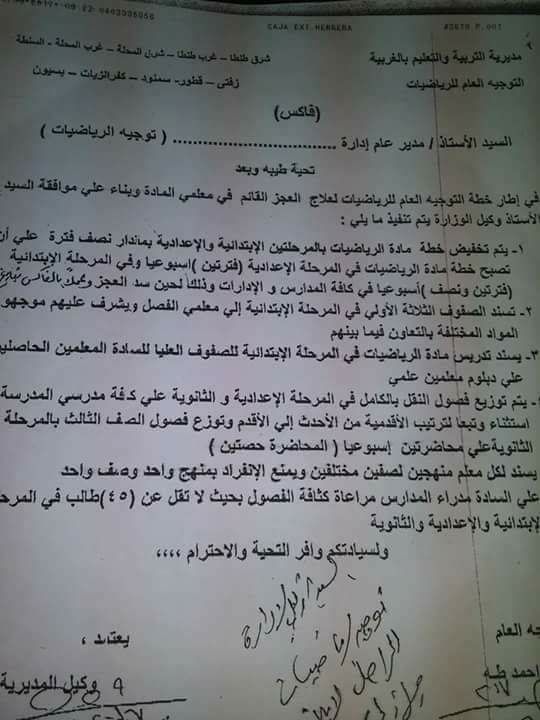 CAJA EXT HERRERA
مديرية التربية والتعليم بالغربية
شرق طنطا – غرب طنطا – شرق المحلة – غرب المحلة - السنطة
التوجيه العام للرياضيات
زفتى – قطور- سمنود – كفرالزيات – بسيون
(فاكس)
السيد الأستاذ / مدير عام إدارة ................................ ( توجيه الرياضيات )
تحية طيبه وبعد
في إطار خطة التوجيه العام للرياضيات لعلاج العجز القائم في معلمي المادة وبناء علي موافقة السيد
الأستاذ وكيل الوزارة يتم تنفيذ ما يلي :
١- يتم تخفيض خطة مادة الرياضيات بالمرحلتين الإبتدائية والإعدادية بماندار نصف فترة علي أن
تصبح خطة مادة الرياضيات في المرحلة الإعدادية (فترتين )إسبوعيا وفي المرحلة الإبتدائية
(فترتين ونصف )أسبوعيا في كافة المدارس و الإدارات وذلك لحين سد العجز
٢- تسند الصفوف الثلاثة الأولي في المرحلة الإبتدائية إلي معلمي الفصل ويشرف عليهم موجهو
المواد المختلفة بالتعاون فيما بينهم
٣- يسند تدريس مادة الرياضيات في المرحلة الإبتدائية للصفوف العليا للسادة المعلمين الحاصلين
علي دبلوم معلمين علمي
- يتم توزيع فصول النقل بالكامل في المرحلة الإعدادية و الثانوية علي كافة مدرسي المدرسة
استثناء وتبعا لترتيب الأقدمية من الأحدث إلي الأقدم وتوزع فصول الصف الثالث بالمرحلة
الثانويةعلي محاضرتين إسبوعيا ( المحاضرة حصتين )
يسند لكل معلم منهجين لصفين مختلفين ويمنع الإنفراد بمنهج واحد وصف واحد
علي السادة مدراء المدارس مراعاة كثافة الفصول بحيث لا تقل عن (٤٥)طالب في المرحلة
الإبتدائية والإعدادية والثانوية
ولسيادتكم وافر التحية والاحترام ،،،،
يعتمد ،
وكيل المديرية
احمد طه